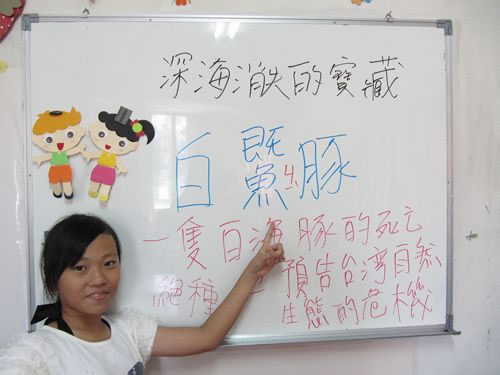 深海消失的寶藏
白鱀豚
一隻百海豚的死亡
絕種 預告台湾自然
生態的危機